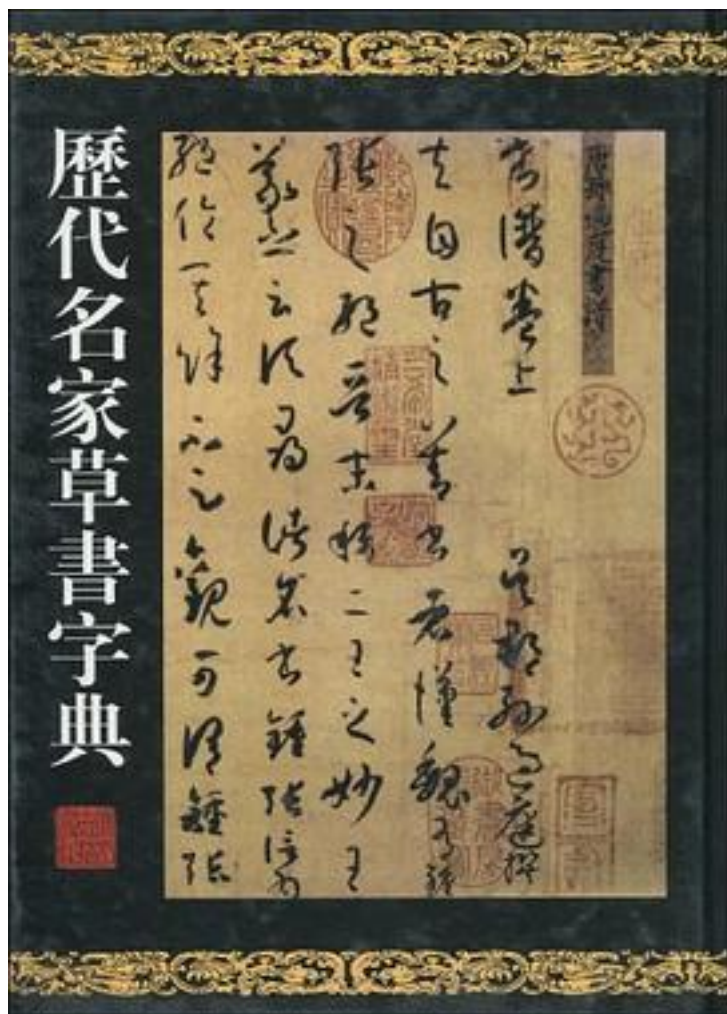 歷代名家草書字典
唐孫過庭書譜
書譜卷上
吳郡孫過庭撰
夫自古之善書者漢魏有鍾
張之絕晉末稱二王之妙王
羲之云頃尋諸名書鍾張信為
絕倫其餘不足觀可謂鍾張